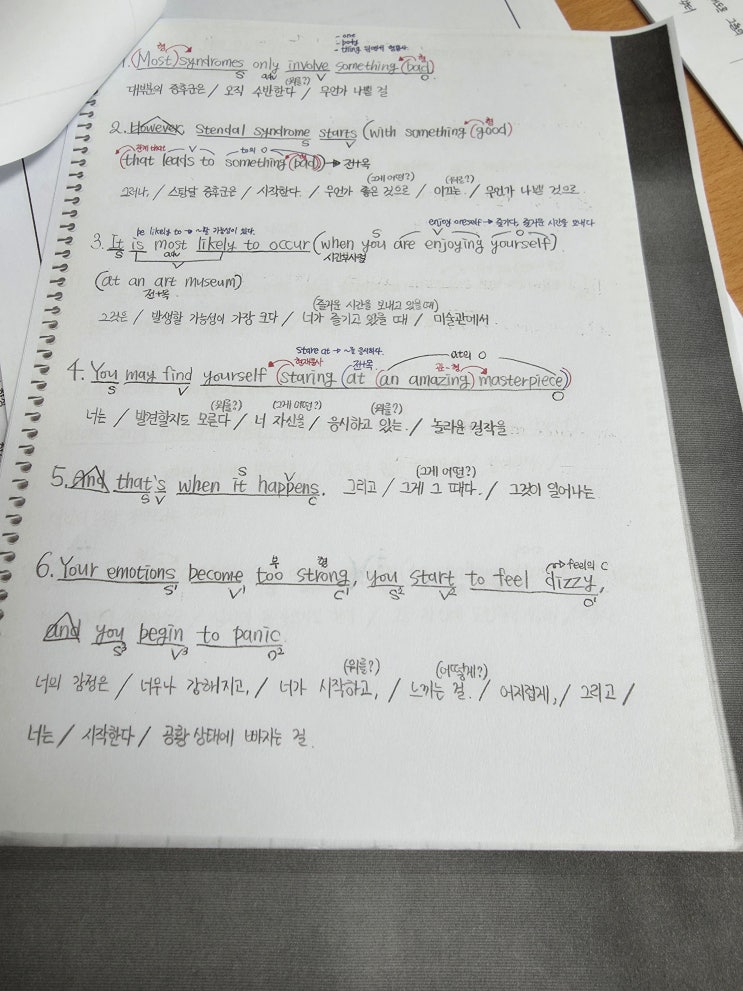 - one
- body
- thing 뒤에서 형용사.
형 형
1. (Most) syndromes only involve something (bad)
S adv V O
(뭐를?)
대부분의 증후군은 / 오직 수반한다 / 무언가 나쁜 걸
2. However, Stendal syndrome starts (with something (good)
S V
관계 that V to의 O
(that leads to something (bad)) → 전+목
(그게 어떤?) (뭐로?)
그러나, / 스탕달 증후군은 / 시작한다. / 무언가 좋은 것으로 / 이끄는. / 무언가 나쁜 것으로.
be likely to → ~할 가능성이 있다. enjoy oneself → 즐기다, 즐거운 시간을 보내다
S V O
3. It is most likely to occur (when you are enjoying yourself)
S adv 시간부사절
V
(at an art museum)
전+목.
(즐거운 시간을 보내고 있을 때)
그것은 / 발생할 가능성이 가장 크다 / 너가 즐기고 있을 때 / 미술관에서.
Stare at → ~을 응시하다. at의 O
현재분사 전+목 관-형
4. You may find yourself (staring (at (an amazing) masterpiece))
S V O
(뭐를?) (그게 어떤?) (뭐를?)
너는 / 발견할지도 모른다 / 너 자신을 / 응시하고 있는. / 놀라운 걸작을
S V
5. And that's when it happens. 그리고 / 그게 그 때다. / 그것이 일어나는
S V C
(그게 어떤?)
부 형 feel의 C
6. Your emotions become too strong, you start to feel dizzy,
S¹ V¹ C¹ S² V² O¹
and you begin to panic.
S³ V³ O²
(뭐를?) (어떻게?)
너의 감정은 / 너무나 강해지고, / 너가 시작하고, / 느끼는 걸. / 어지럽게, / 그리고 /
너는 / 시작한다 / 공황 상태에 빠지는 걸.